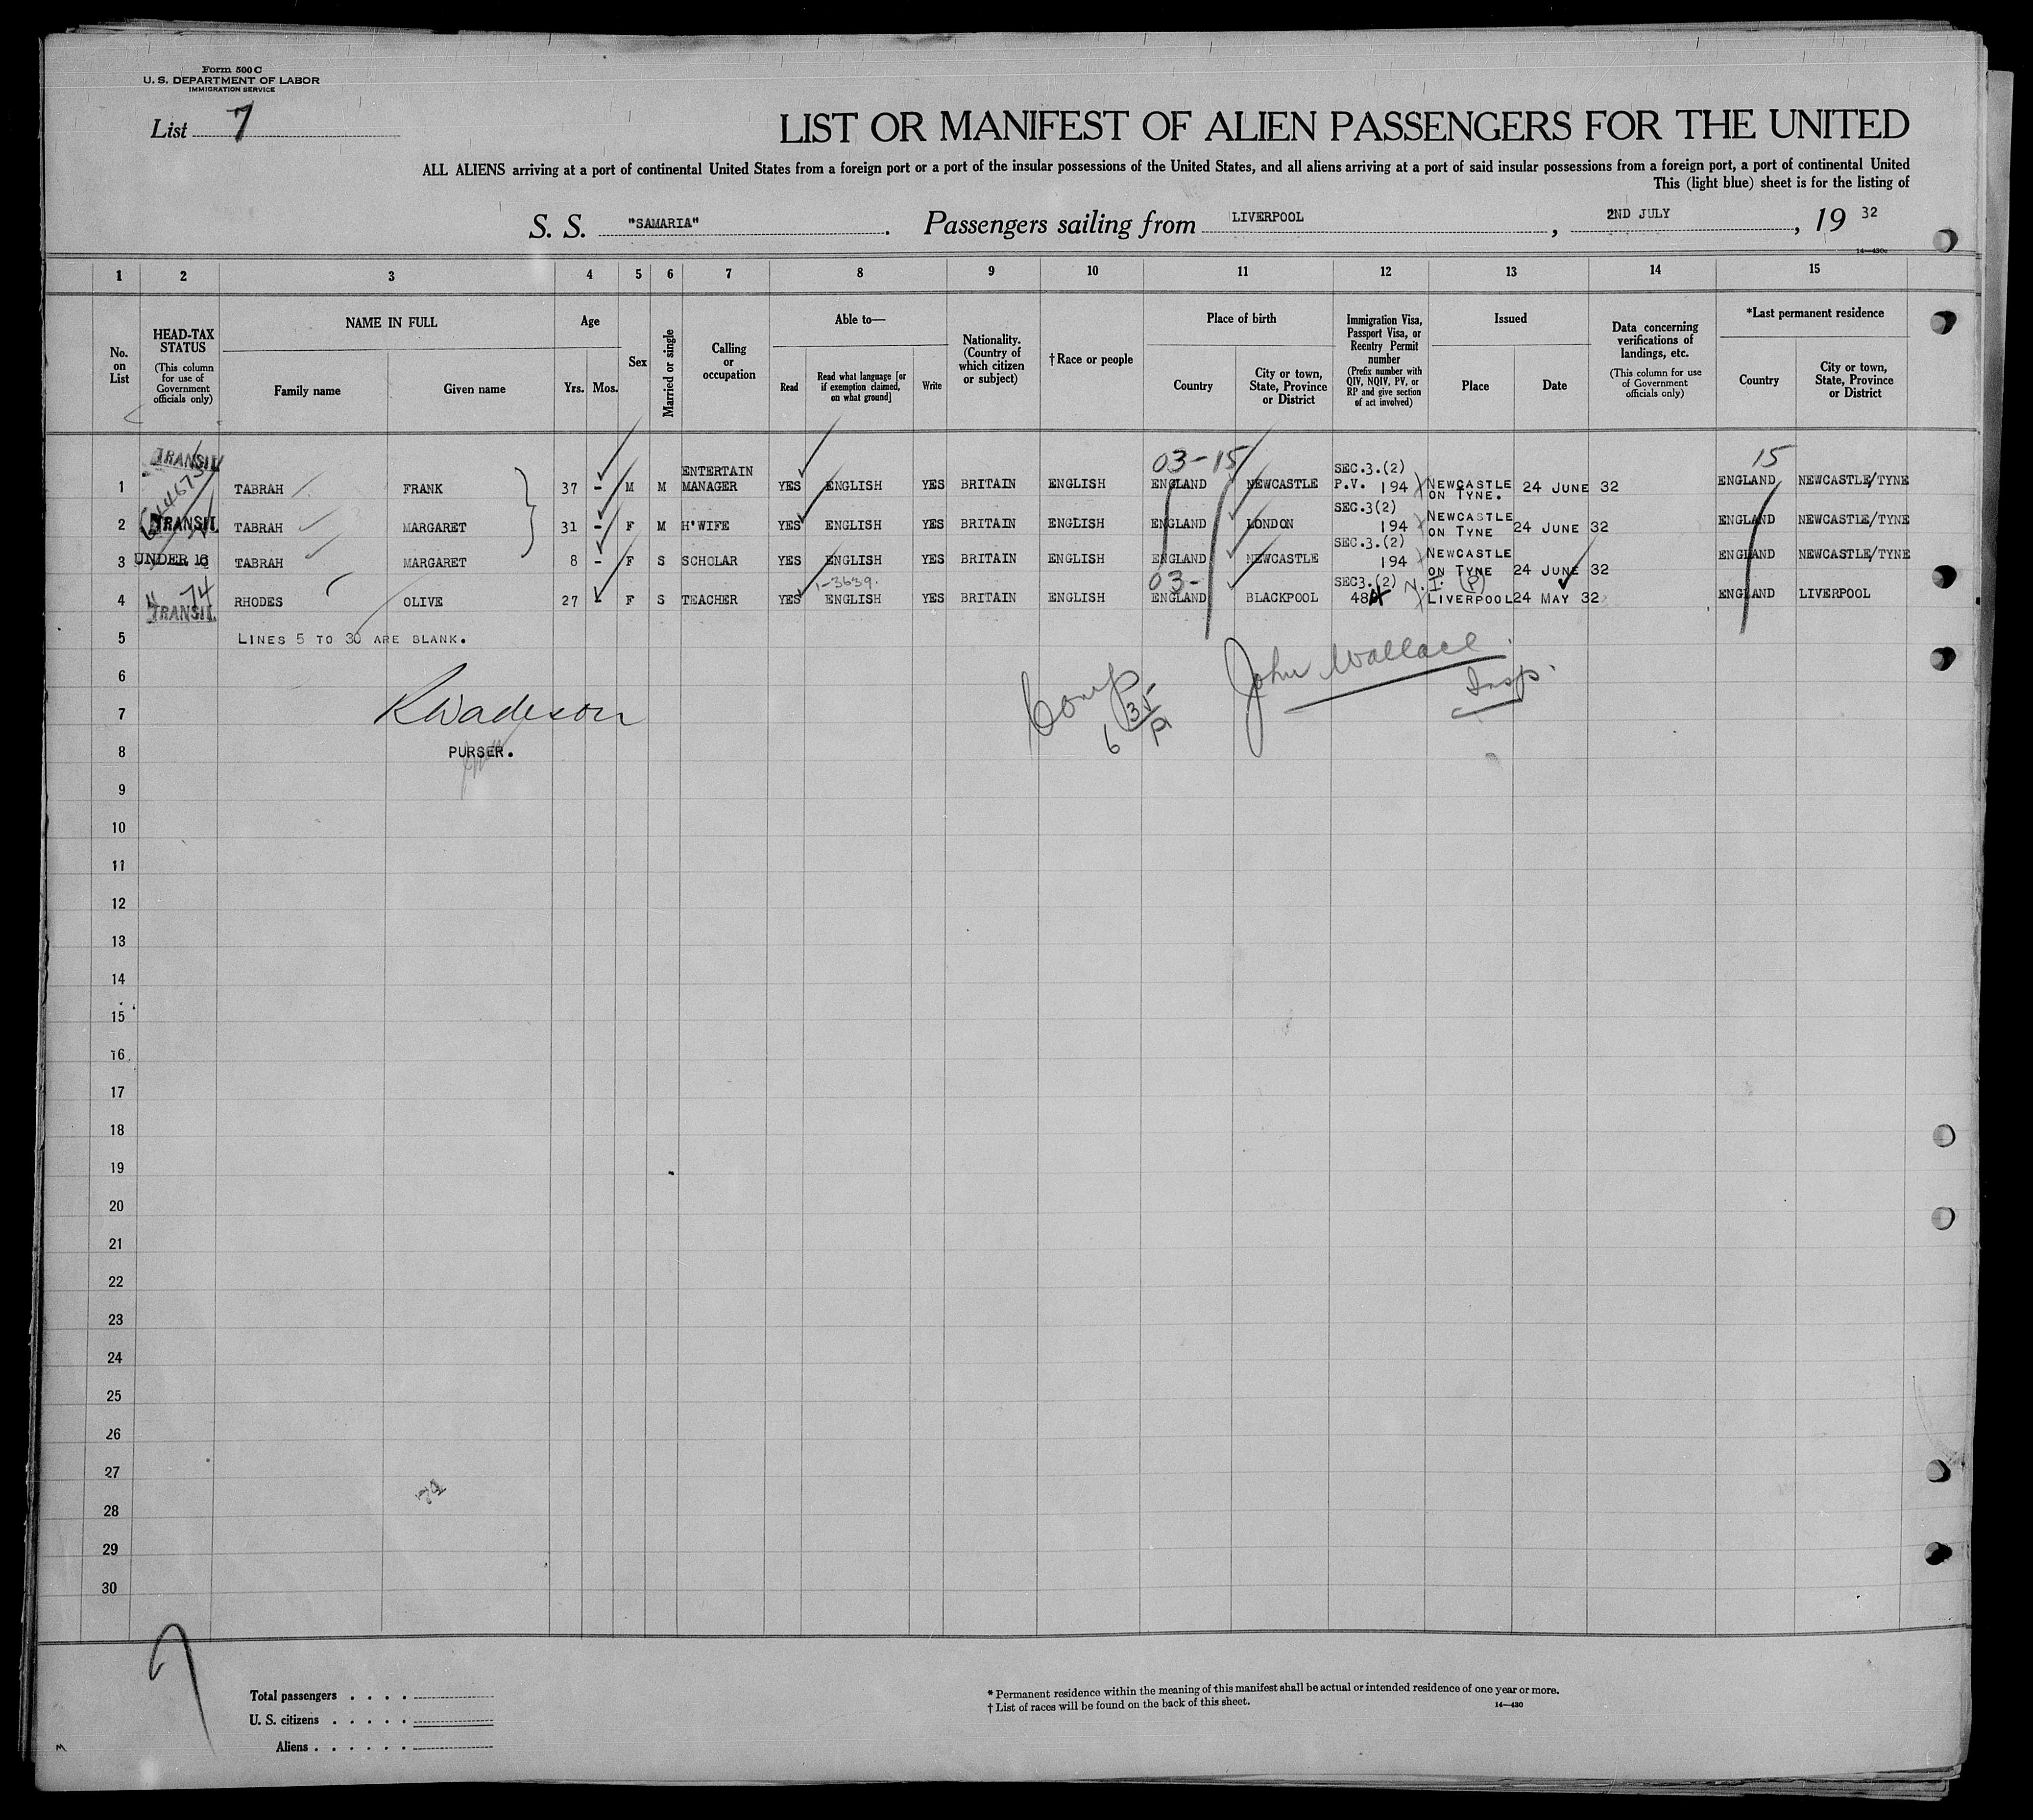 Form 500 C
U. S. DEPARTMENT OF LABOR
IMMIGRATION SERVICE
List 7
LIST OR MANIFEST OF ALIEN PASSENGERS FOR THE UNITED
ALL ALIENS arriving at a port of continental United States from a foreign port or a port of the insular possessions of the United States, and all aliens arriving at a port of said insular possessions from a foreign port, a port of continental United
This (light blue) sheet is for the listing of
S. S. "SAMARIA". Passengers sailing from LIVERPOOL, 2ND JULY, 19 32
14—430c
1 2 3 4 5 6 7 8 9 10 11 12 13 14 15
No. on List
HEAD-TAX STATUS (This column for use of Government officials only)
NAME IN FULL
Family name
Given name
Age
Yrs. Mos.
Sex
Married or single
Calling or occupation
Able to—
Read
Read what language [or if exemption claimed, on what ground]
Write
Nationality. (Country of which citizen or subject)
†Race or people
Place of birth
Country
City or town, State, Province or District
Immigration Visa, Passport Visa, or Reentry Permit number (Prefix number with QIV, NQIV, PV, or RP and give section of act involved)
Issued
Place
Date
Data concerning verifications of landings, etc. (This column for use of Government officials only)
*Last permanent residence
Country
City or town, State, Province or District
03-15 15
1 TRANSIT TABRAH FRANK 37 - M M ENTERTAIN MANAGER YES ENGLISH YES BRITAIN ENGLISH ENGLAND NEWCASTLE SEC.3.(2) P.V. 194 NEWCASTLE ON TYNE. 24 JUNE 32 ENGLAND NEWCASTLE/TYNE
2 TRANSIT TABRAH MARGARET 31 - F M H'WIFE YES ENGLISH YES BRITAIN ENGLISH ENGLAND LONDON SEC.3(2) 194 NEWCASTLE ON TYNE 24 JUNE 32 ENGLAND NEWCASTLE/TYNE
3 UNDER 16 TABRAH MARGARET 8 - F S SCHOLAR YES ENGLISH YES BRITAIN ENGLISH ENGLAND NEWCASTLE SEC.3.(2) 194 NEWCASTLE ON TYNE 24 JUNE 32 ENGLAND NEWCASTLE/TYNE
1-3639. 03- N. I. (P)
4 74 TRANSIT RHODES OLIVE 27 - F S TEACHER YES ENGLISH YES BRITAIN ENGLISH ENGLAND BLACKPOOL SEC3.(2) LIVERPOOL 24 MAY 32 ENGLAND LIVERPOOL
5 LINES 5 TO 30 ARE BLANK.
John Wallace
Insp.
6
7 KWadeson
8 PURSER.
9
10
11
12
13
14
15
16
17
18
19
20
21
22
23
24
25
26
27
28
29
30
7
Total passengers . . . .
U. S. citizens . . . . .
Aliens . . . . . .
* Permanent residence within the meaning of this manifest shall be actual or intended residence of one year or more.
† List of races will be found on the back of this sheet.
14—430